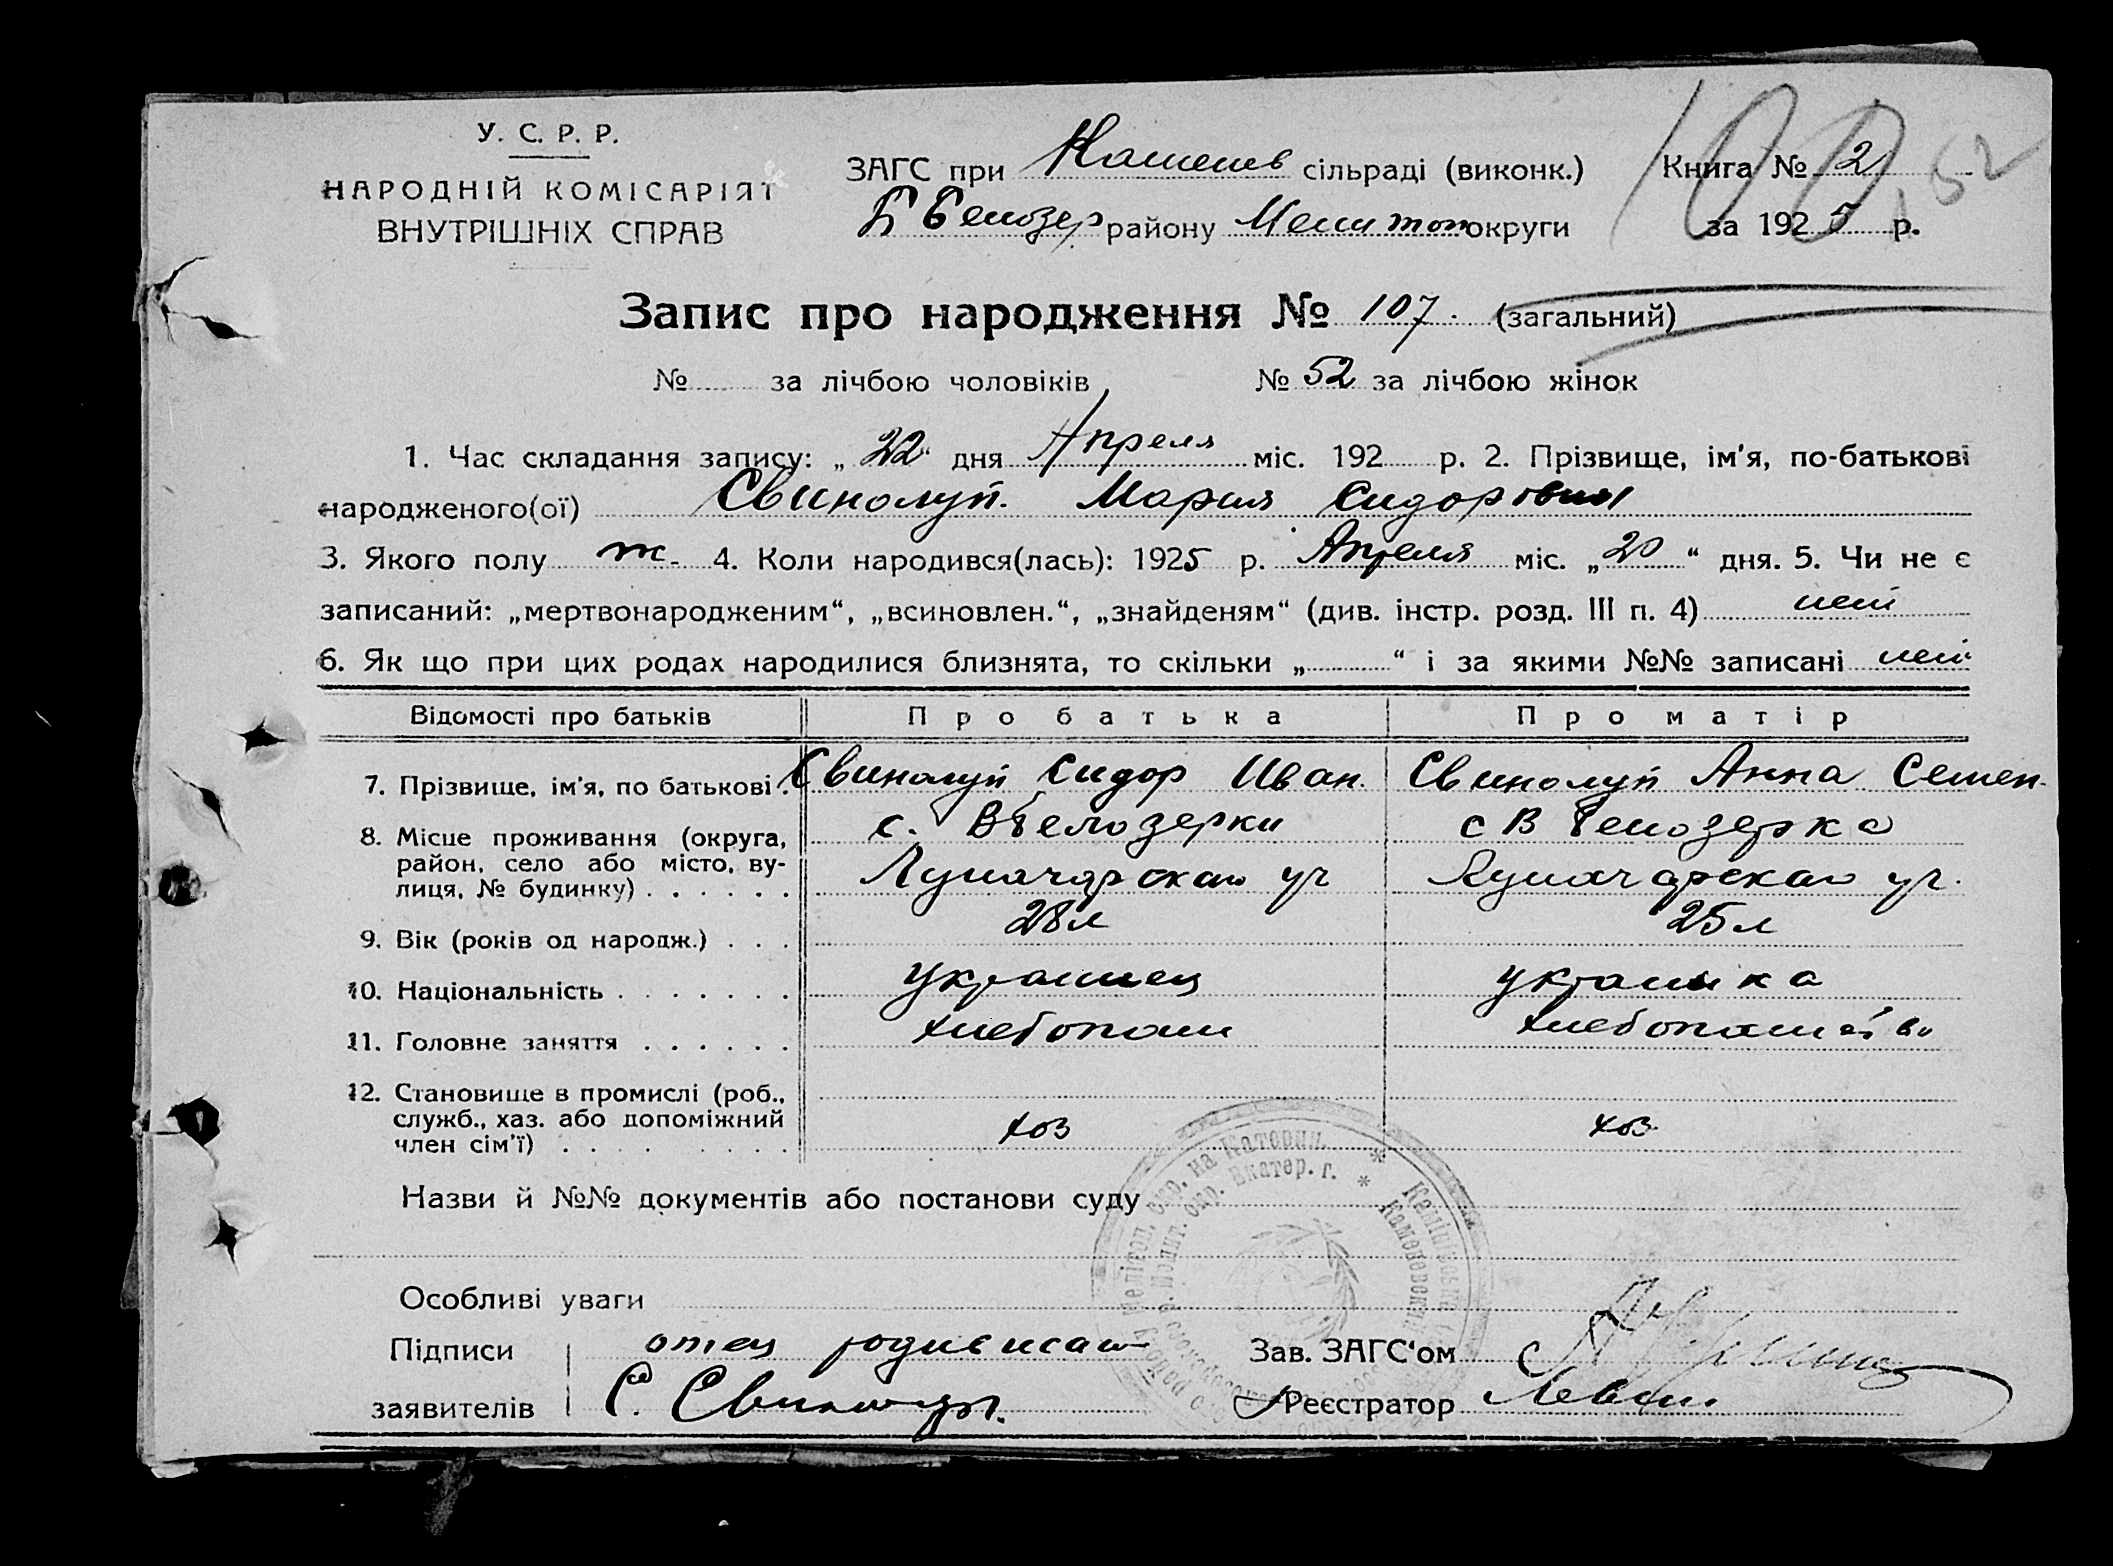 У. С. Р. Р.
НАРОДНІЙ КОМІСАРІЯТ
ВНУТРІШНІХ СПРАВ
ЗАГС при Каменев сільраді (виконк.)
Б Белозер району Мелитоп округи
Книга № 2
за 1925 р.
100, 52
Запис про народження № 107. (загальний)
№ за лічбою чоловіків № 52 за лічбою жінок
1. Час складання запису: „22“ дня Апреля міс. 192 р. 2. Прізвище, ім'я, по-батькові
народженого(ої) Свинолуп. Мария Сидоровна
3. Якого полу ж. 4. Коли народився(лась): 1925 р. Апреля міс. „20“ дня. 5. Чи не є
записаний: „мертвонародженим“, „всиновлен.“, „знайденям“ (див. інстр. розд. III п. 4) нет
6. Як що при цих родах народилися близнята, то скільки „ “ і за якими №№ записані нет
Відомості про батьків Про батька Про матір
7. Прізвище, ім'я, по батькові. Свинолуп Сидор Иван. Свинолуп Анна Семен.
8. Місце проживання (округа, с. ВБелозерки с В Белозерка
район, село або місто, ву-
лиця, № будинку) . . . . . . Луначарская ул Луначарская ул.
9. Вік (років од народж.) . . . 28л 25л
10. Національність . . . . . . . украинец украинка
11. Головне заняття . . . . . . хлебопаш хлебопашество
12. Становище в промислі (роб.,
служб., хаз. або допоміжний
член сім'ї) . . . . . . . . хоз хоз
Назви й №№ документів або постанови суду
Особливі уваги
Підписи отец родписал Зав. ЗАГС'ом
заявителів С. Свинолуп. Реєстратор